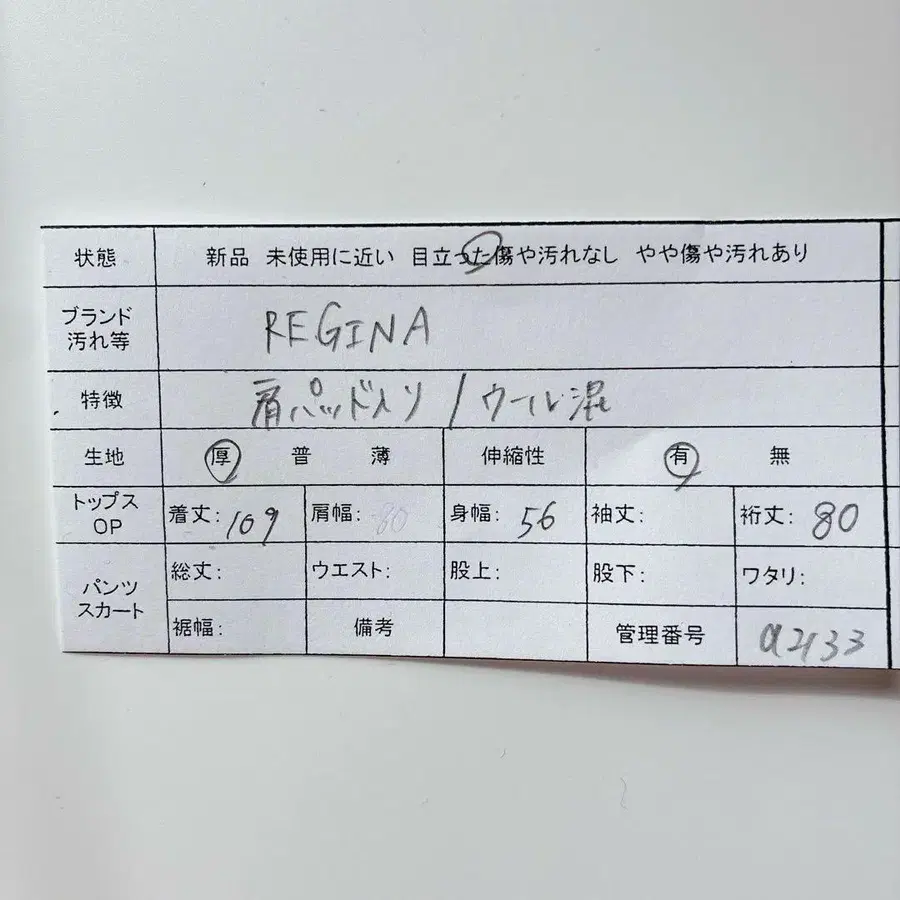 状態 新品 未使用に近い 目立った傷や汚れなし やや傷や汚れあり
ブランド
汚れ等 REGINA
特徴 肩パッド入り / ウール混
生地 厚 普 薄 伸縮性 有 無
トップス
OP 着丈: 109 肩幅: 80 身幅: 56 袖丈: 裄丈: 80
パンツ
スカート 総丈: ウエスト: 股上: 股下: ワタリ:
裾幅: 備考 管理番号 a2133